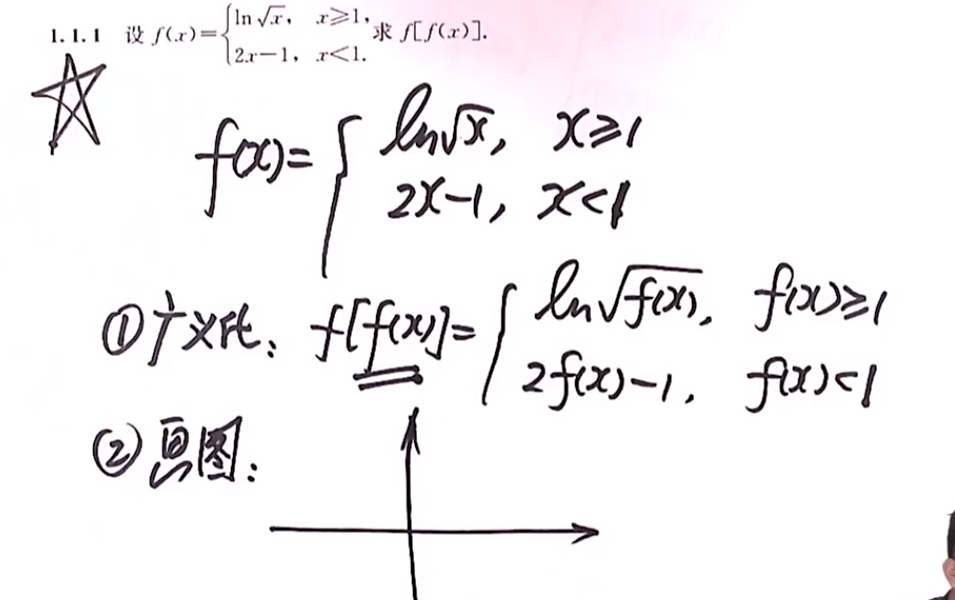 1.1.1 设 f(x)={ln√x, x≥1, 2x-1, x<1. 求 f[f(x)].
f(x)={ln√x, x≥1
2x-1, x<1
①广义化: f[f(x)]={ln√f(x), f(x)≥1
2f(x)-1, f(x)<1
②画图: